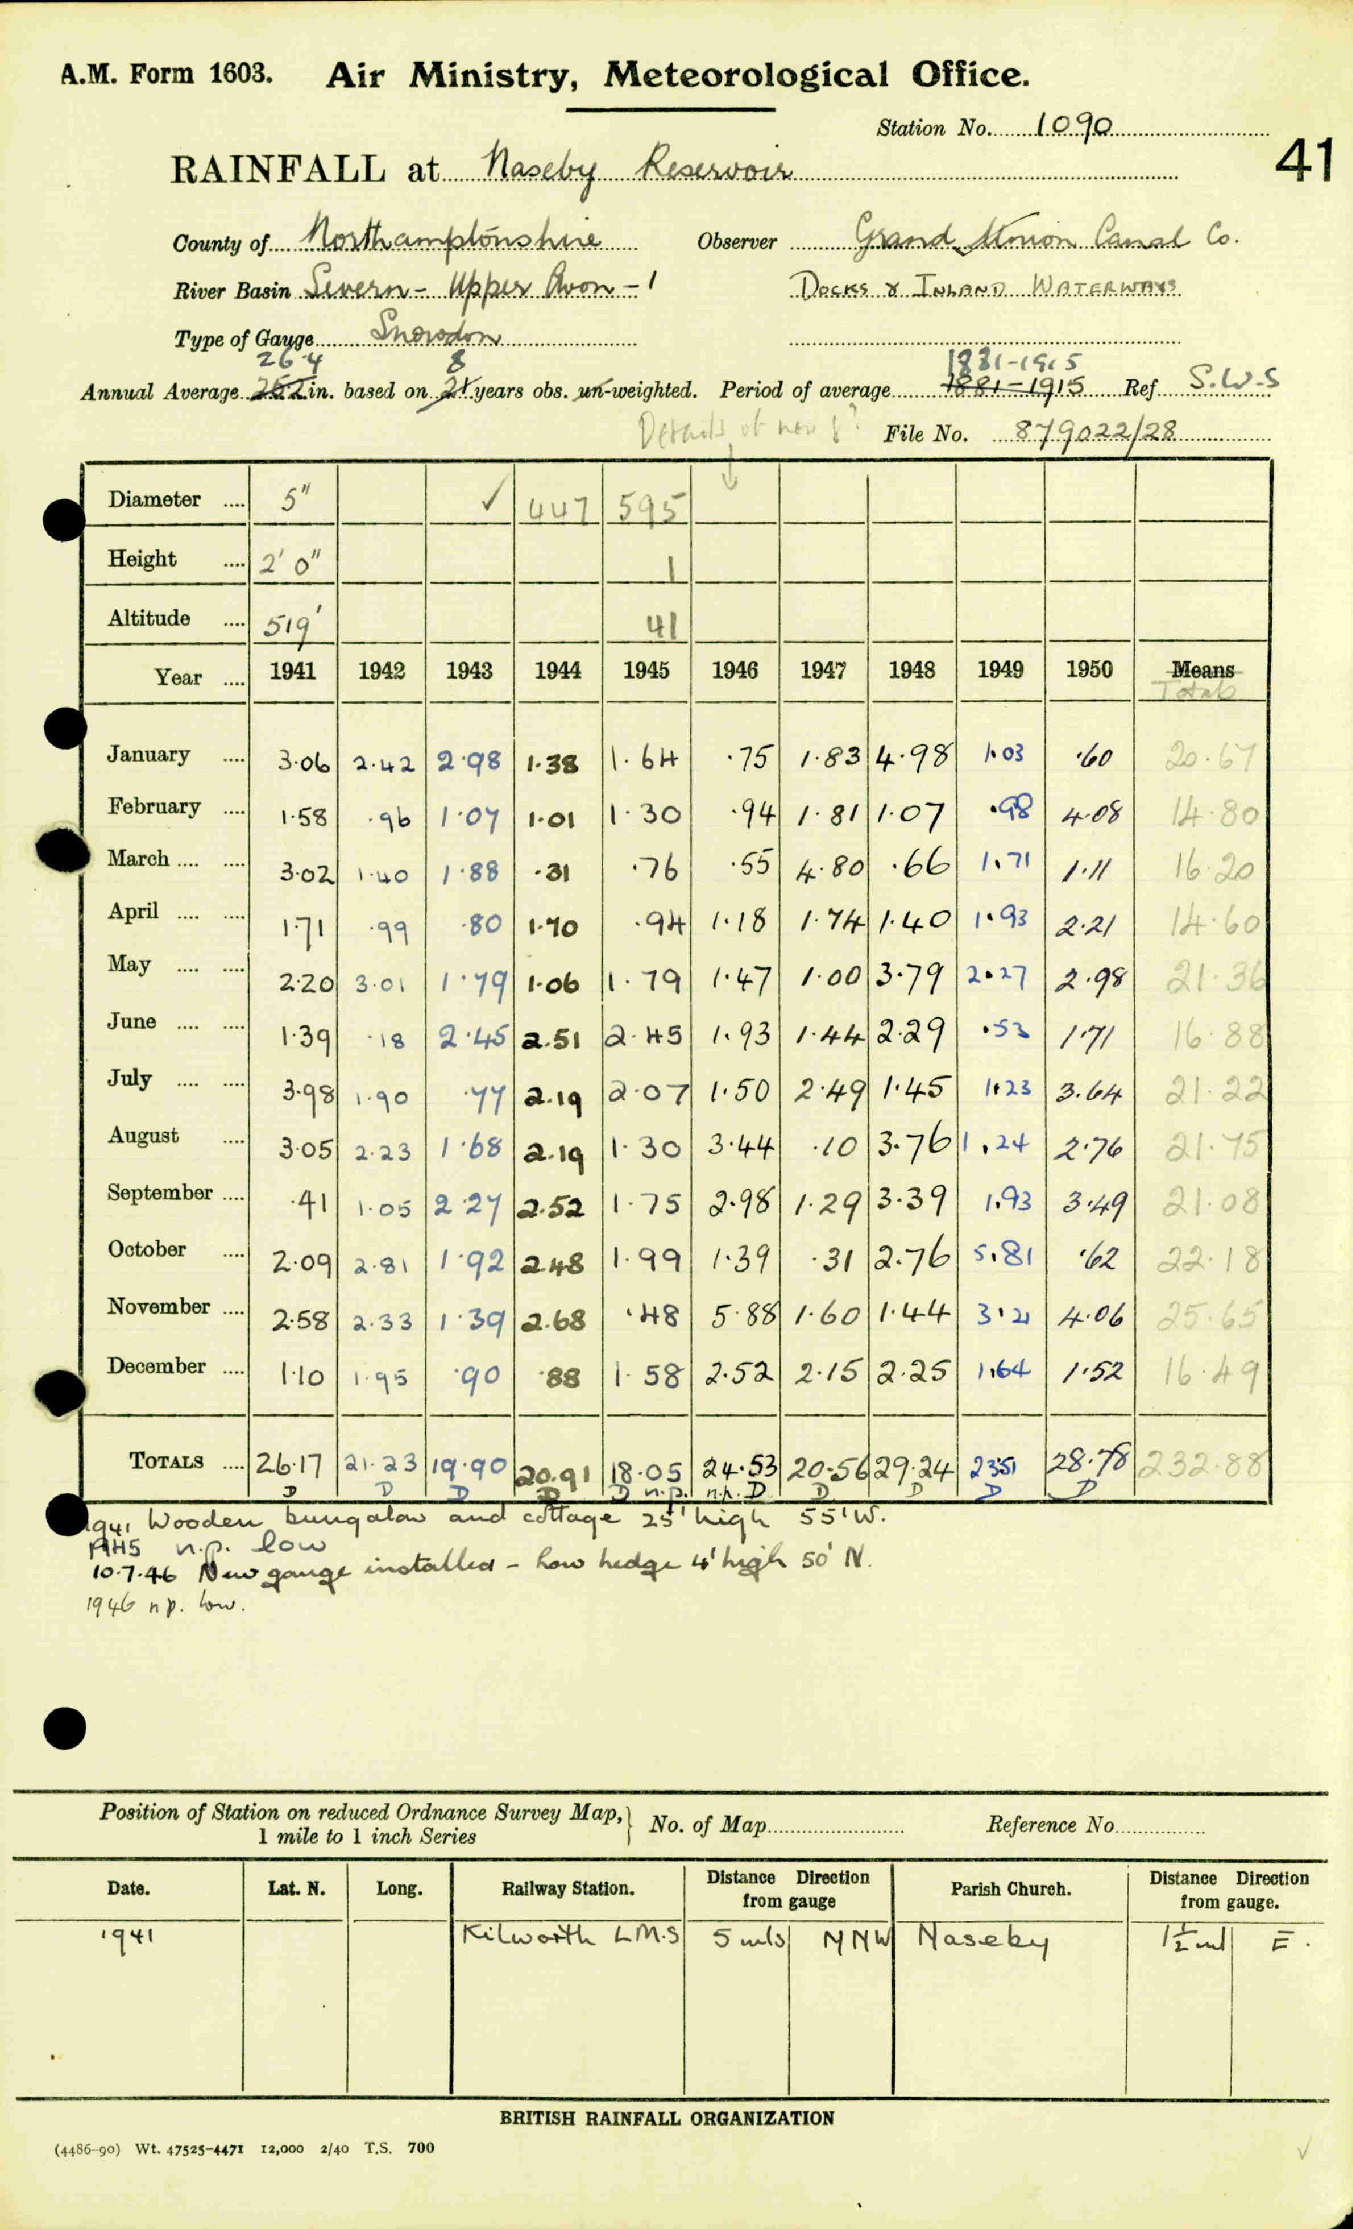 A.M. Form 1603. Air Ministry, Meteorological Office.
Station No. 1090
41
RAINFALL at Naseby Reservoir
County of Northamptonshire Observer Grand Union Canal Co.
River Basin Severn - Upper Avon - 1 DOCKS & INLAND WATERWAYS
Type of Gauge Snowdon
26.4 8 1881-1915
Annual Average 25.2 in. based on 21 years obs. un-weighted. Period of average 1881-1915 Ref S.W.S
Details of new ? File No. 879022/28
Diameter .... 5" ✓ 447 595
Height .... 2' 0" 1
Altitude .... 519' 41
Year .... 1941 1942 1943 1944 1945 1946 1947 1948 1949 1950 Means
Totals
January .... 3.06 2.42 2.98 1.38 1.64 .75 1.83 4.98 1.03 .60 20.67
February .... 1.58 .96 1.07 1.01 1.30 .94 1.81 1.07 .98 4.08 14.80
March .... .... 3.02 1.40 1.88 .31 .76 .55 4.80 .66 1.71 1.11 16.20
April .... .... 1.71 .99 .80 1.70 .94 1.18 1.74 1.40 1.93 2.21 14.60
May .... .... 2.20 3.01 1.79 1.06 1.79 1.47 1.00 3.79 2.27 2.98 21.36
June .... .... 1.39 .18 2.45 2.51 2.45 1.93 1.44 2.29 .53 1.71 16.88
July .... .... 3.98 1.90 .77 2.19 2.07 1.50 2.49 1.45 1.23 3.64 21.22
August .... 3.05 2.23 1.68 2.19 1.30 3.44 .10 3.76 1.24 2.76 21.75
September .... .41 1.05 2.27 2.52 1.75 2.98 1.29 3.39 1.93 3.49 21.08
October .... 2.09 2.81 1.92 2.48 1.99 1.39 .31 2.76 5.81 .62 22.18
November .... 2.58 2.33 1.39 2.68 .48 5.88 1.60 1.44 3.21 4.06 25.65
December .... 1.10 1.95 .90 .88 1.58 2.52 2.15 2.25 1.64 1.52 16.49
TOTALS .... 26.17 21.23 19.90 20.91 18.05 24.53 20.56 29.24 23.51 28.78 232.88
D D D D D n.p. n.p. D D D D D
1941 Wooden bungalow and cottage 25' high 55' W.
1945 n.p. low
10.7.46 New gauge installed - low hedge 4' high 50' N.
1946 n.p. low.
Position of Station on reduced Ordnance Survey Map, 1 mile to 1 inch Series } No. of Map Reference No.
Date. Lat. N. Long. Railway Station. Distance Direction from gauge Parish Church. Distance Direction from gauge.
1941 Kilworth L.M.S 5 mls NNW Naseby 1½ ml E.
BRITISH RAINFALL ORGANIZATION
(4486-90) Wt. 47525-4471 12,000 2/40 T.S. 700
✓